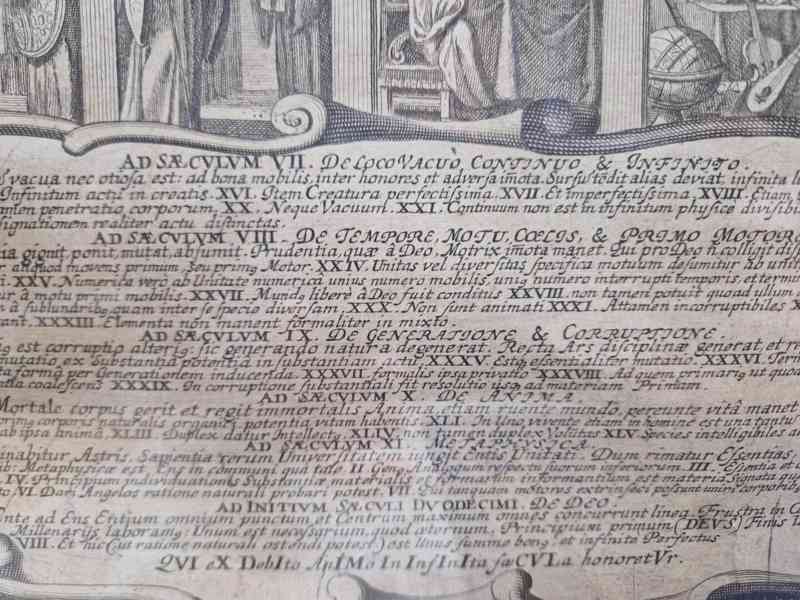 AD SÆCVLVM VII. DE LOCO VACUO, CONTINUO & INFINITO.
vacua nec otiosa est: ad bona mobilis, inter honores et adversa imota. alias deviat, infinita
Infinitum actu in creatis. XVI. Item Creatura perfectissima. XVII. Et imperfectissima. XVIII. Etiam
penetratio corporum. XX. Neque Vacuum. XXI. Continuum non est in infinitum physice
realiter actu distinctas.
AD SÆCVLVM VIII. DE TEMPORE, MOTU, CŒLIS, & PRIMO MOTORE
gignit, ponit, mutat, absumit. Prudentia, quæ à Deo, Motrix imota manet. Qui pro Deo
aliquod movens primum, seu primus Motor. XXIV. Unitas vel diversitas specifica motuum desumitur ab
XXV. Numerica vero ab Unitate numerica unius numero mobilis, unius numero interrupti temporis, et
à motu primi mobilis. XXVII. Mundus liberè à Deo fuit conditus XXVIII. non tamen potuit quoad
à sublunaribus, quam inter se specie diversam. XXX. Non sunt animati XXXI. Attamen incorruptibiles
XXXIII. Elementa non manent formaliter in mixto.
AD SÆCVLVM IX. DE GENERATIONE, & CORRUPTIONE.
est corruptio alterius: sic generando natura augenerat. Recta Ars disciplinæ generat, et
mutatio ex Substantia potentia in substantiam actu XXXV. Estque essentialiter mutatio. XXXVI.
forma per Generationem inducenda. XXXVII. formalis ipsa privatio XXXVIII. Ad quem primarius ut quod
coalescens XXXIX. In corruptione substantiali fit resolutio usque ad materiam Primam.
AD SÆCVLVM X. DE ANIMA.
Mortale corpus gerit et regit immortalis Anima, etiam ruente mundo, pereunte vitâ manet
corporis naturalis organici, potentia vitam habentis. XLI. In Uno vivente etiam in homine est una tantum
ab ipsa anima. XLIII. Duplex datur Intellectus XLIV. non tamen duplex Volutas XLV Species intelligibiles
AD SÆCVLVM XI.
Astris. Sapientia rerum Universitatem iungit Entis Unitati. Dum rimatur Essentias,
Metaphysicæ est, Ens in communi qua tale. II Genus Analogum respectu suorum inferiorum. III. Essentia et
IV. Principium individuationis Substantiæ, materialis et formarum informantium est materia signata
VI. Dari Angelos ratione naturali probari potest. VII. Qui tanquam motores extrinseci possunt uniri corporibus
AD INITIVM SÆCVLI DVODECIMI. DE DEO
ad Ens Entium omnium punctum et Centrum maximum omnes concurrunt lineæ. Frustra in
Millenarijs laboramus: Unum est necessarium, quod æternum. Principium primum (DEVS) Finis
VIII. Et hic (ut ratione naturali ostendi potest) est Unus summe bonus, et infinite Perfectus
QVI eX DebIto AnIMo In InfInIta sæCVLa honoretVr.